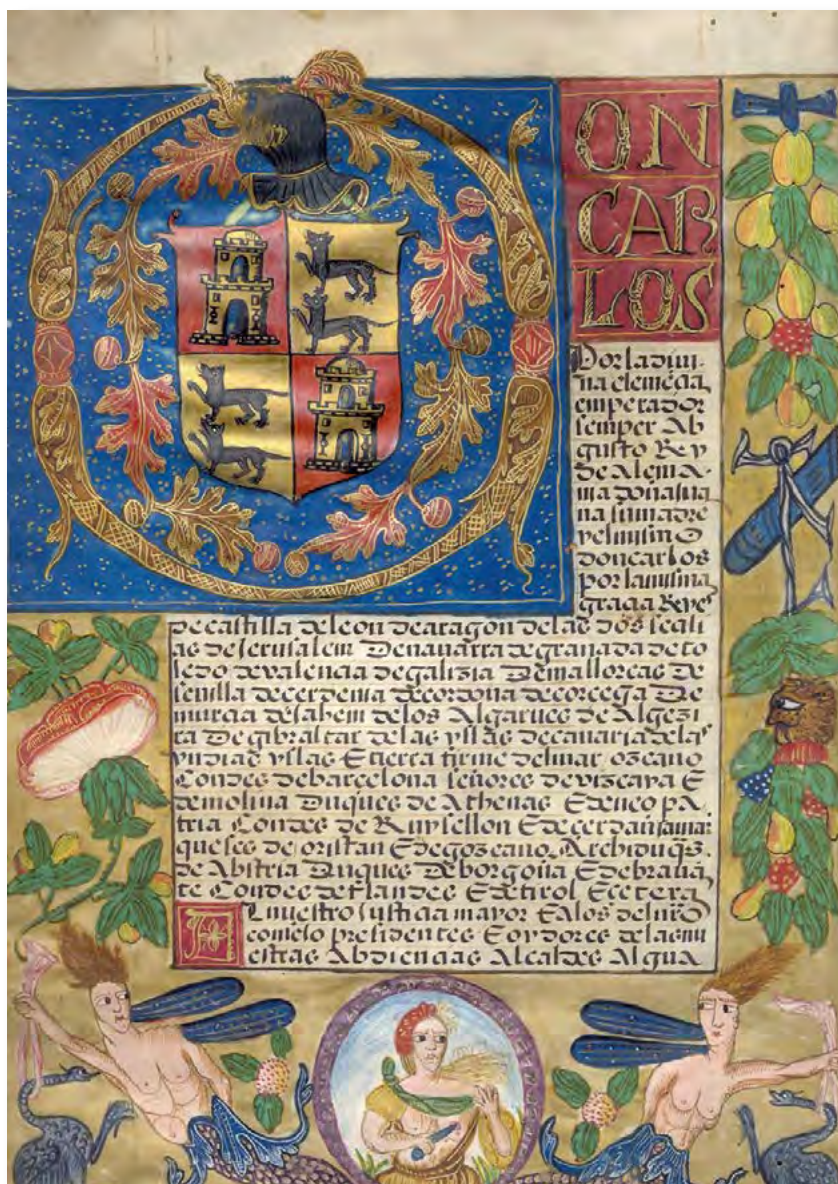 ON
CAR
LOS
Por la diui-
na clemēcia
emperador
semper Ab
gusto Rey
de Alema-
nia doña jua
na su madre
y el mismo
don carlos
por la misma
gracia Reyes
de castilla de leon de aragon de las dos secili
as de Jerusalem De nauarra de granada de to
ledo de valencia de galizia De mallorcas de
seuilla de cerdenia de cordoua de corcega De
murcia de Jahem de los Algarues de Algezi
ra De gibraltar de las yslas de canaria de las
yndias yslas E tierra firme del mar ozeano
Condes de barcelona señores de vizcaya E
de molina Duques de Athenas E de neo pa
tria Condes de Ruysellon E de cerdania mar
queses de oristan E de gozeano, Archiduq̄s.
de Abstria Duques De borgoña E de braua
te Condes de flandes E de tirol Ecetera
Al nuestro justicia mayor E a los del nr̄o
consejo presidentes E oydores de las nu
estras Abdiencias Alcaldes Algua